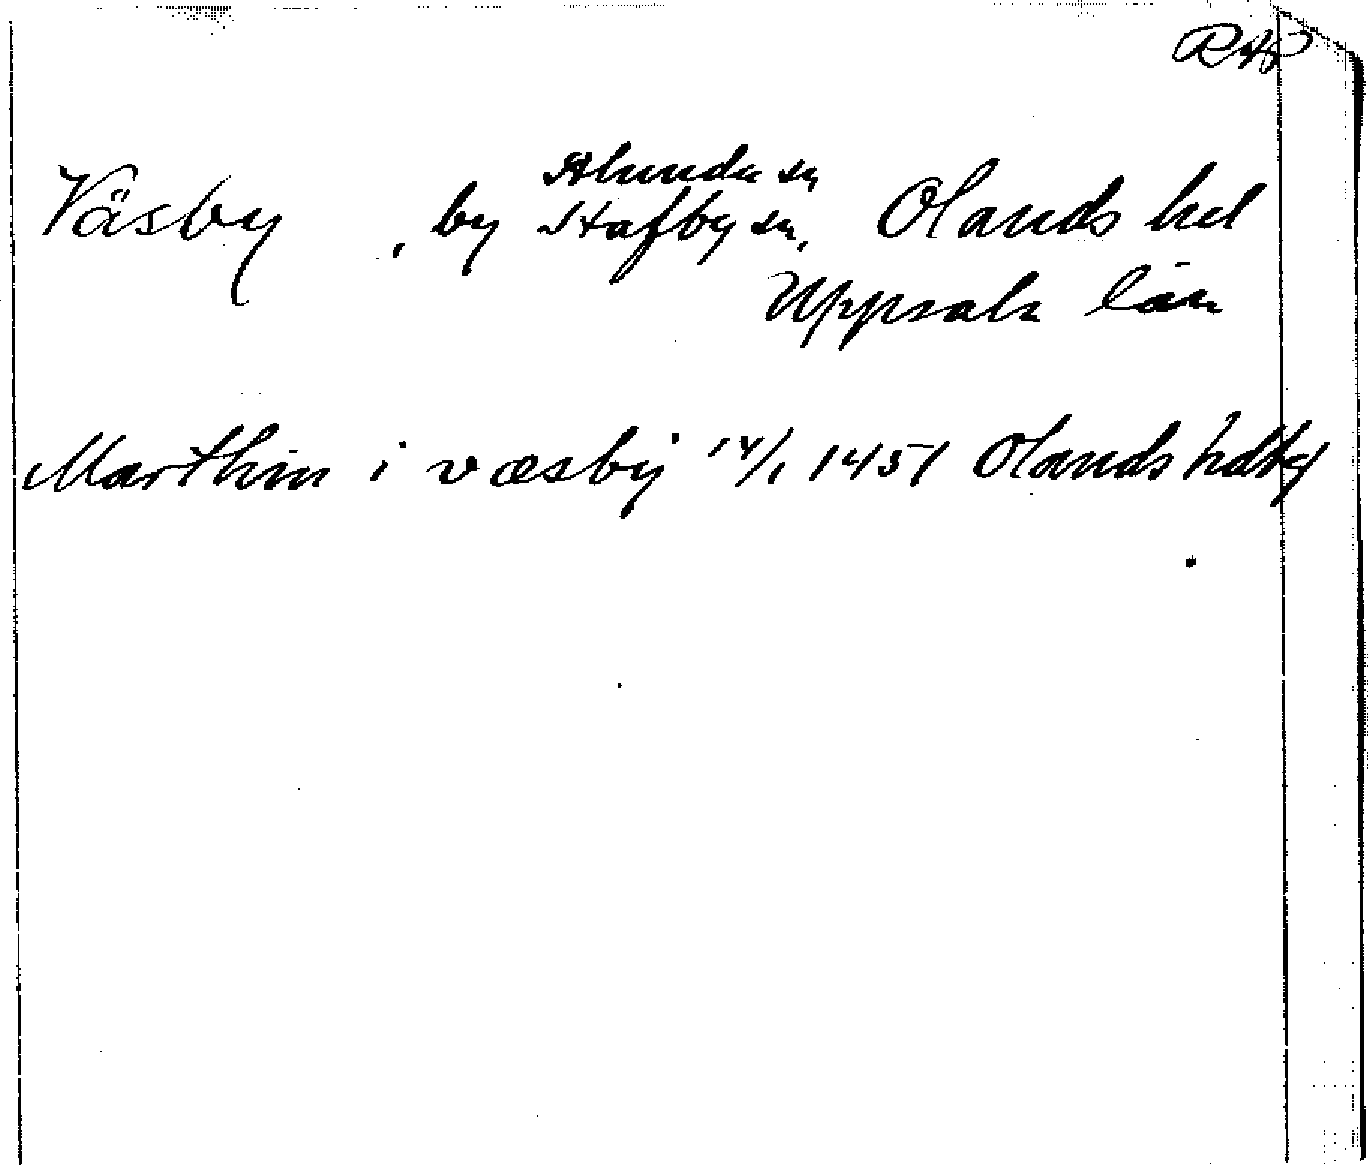 RAP
Väsby , by Alunda sn
Stafby sn, Olands hd
Uppsala län
Marthin i væsby 14/1 1451 Olands hdtg